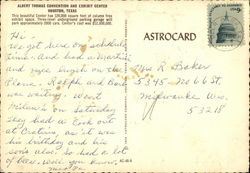 ALBERT THOMAS CONVENTION AND EXHIBIT CENTER
HOUSTON, TEXAS
This beautiful Center has 120,000 square feet of column free
exhibit space. Three-level underground parking garage will
park approximately 2000 cars. Center's cost was $12,000,000.
ASTROCARD
Hi -
We got here on schedule
time. And had a Martini
and nice lunch on the
Plane. Ralph and
were waiting. Went
on Saturday
they had a Cook out
at as it was
his birthday and his
sons also. So had a lot
of beer. Well you know.
Mrs R Baker
5345 - No 66 St
Milwaukee Wis.
53218